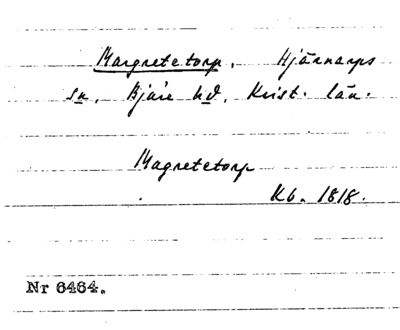 Margretetorp, Hjärnarps
sn, Bjäre hd, Krist. län.
Magretetorp
Kb. 1818.
Nr 6464.